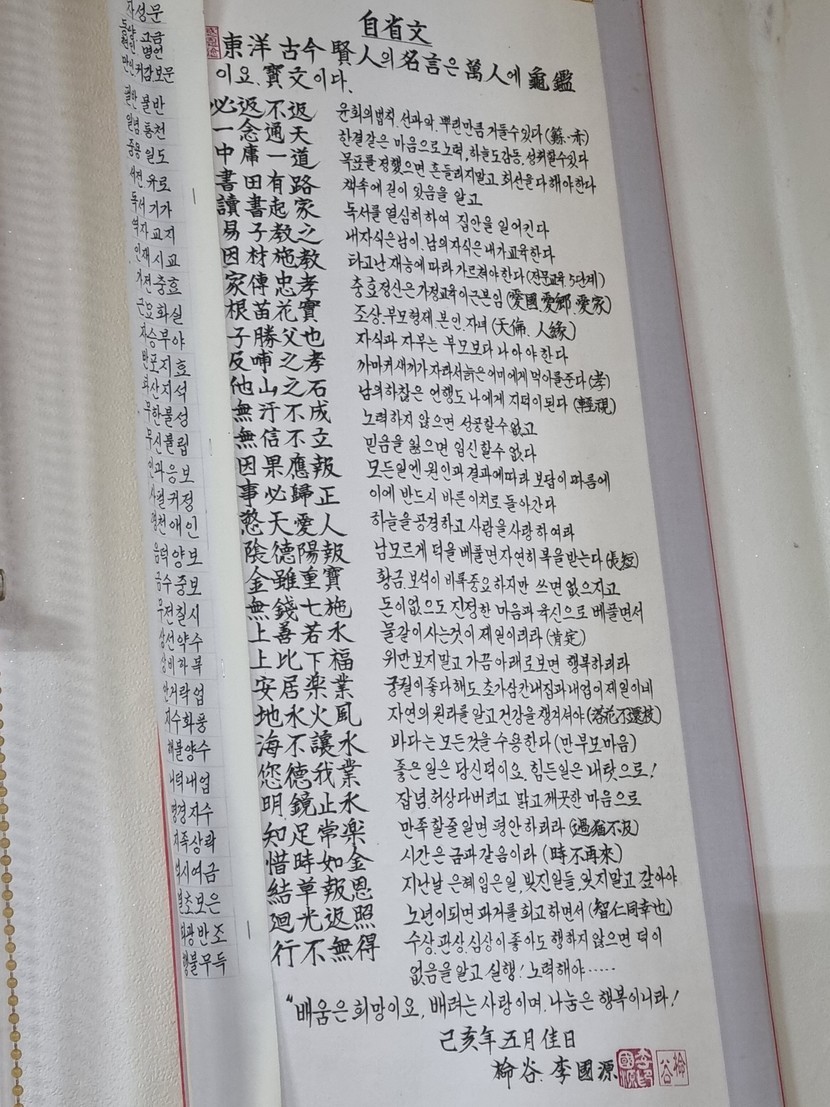 自省文
東洋 古今 賢人의 名言은 萬人에 龜鑑
이요. 寶文이다.
必返不返 윤회의법칙. 선과악. 뿌린만큼 거둘수있다 (蘇·赤)
一念通天 한결같은 마음으로노력, 하늘도감동, 성취할수있다
中庸一道 목표를 정했으면 흔들리지말고, 최선을다해야한다
書田有路 책속에 길이 있음을 알고
讀書起家 독서를 열심히하여 집안을 일어킨다
易子教之 내자식은남이, 남의자식은내가교육한다
因材施教 타고난 재능에 따라 가르쳐야한다 (전문교육 5단계)
家傳忠孝 충효정신은가정교육이근본임 (愛國.愛鄉.愛家)
根苗花實 조상.부모형제.본인.자녀 (天倫. 人緣)
子勝父也 자식과 자부는 부모보다 나아야 한다
反哺之孝 까마커새끼가 자라서늙은어미에게 먹이를준다 (孝)
他山之石 남의하찮은 언행도 나에게 지덕이된다 (輕視)
無汗不成 노력하지 않으면 성공할수없고
無信不立 믿음을 잃으면 입신할수없다
因果應報 모든일엔 원인과 결과에따라 보답이 따름에
事必歸正 이에 반드시 바른이치로 돌아간다
憋天愛人 하늘을 공경하고 사람을 사랑하여라
陰德陽報 남모르게 덕을 베풀면 자연히 복을받는다 (長短)
金雖重寶 황금.보석이 비록중요하지만 쓰면 없으지고
無錢七施 돈이없으도 진정한 마음과 육신으로 베풀면서
上善若水 물같이사는것이 제일이리라 (肯定)
上比下福 위만 보지말고 가끔 아래로보면 행복하리라
安居楽業 궁궐이좋다해도 초가삼간내집과 내업이 제일이네
地水火風 자연의 원리를 알고 건강을 챙겨서야 (落花不還枝)
海不讓水 바다는 모든것을 수용한다 (만부모마음)
您德我業 좋은일은 당신덕이요. 힘든일은 내탓으로!
明鏡止水 잡념.허상다버리고 맑고 깨끗한 마음으로
知足常楽 만족할줄알면 평안하리라 (過猶不及)
惜時如金 시간은 금과같음이라 (時不再來)
結草報恩 지난날 은혜 입은일. 빚진일들. 잊지말고 갚아야
廻光返照 노년이되면 과거를 회고하면서 (智仁同幸也)
行不無得 수상.관상.심상이 좋아도 행하지않으면 덕이
없음을 알고 실행! 노력해야·····
"배움은 희망이요, 배려는 사랑이며. 나눔은 행복이니라!
己亥年五月佳日
李國源
자성문
만인 귀감 보문
필반 불반
일념 통천
중용 일도
서전 유로
독서 기가
역자 교지
인재 시교
가전 충효
근묘화실
자승부야
반포지효
타산지석
무한불성
무신불립
인과응보
사필귀정
경천애인
음덕양보
금수중보
무전칠시
상선약수
상비하복
안거락업
지수화풍
해불양수
너덕내업
명경지수
지족상락
석시여금
결초보은
회광반조
행불무득